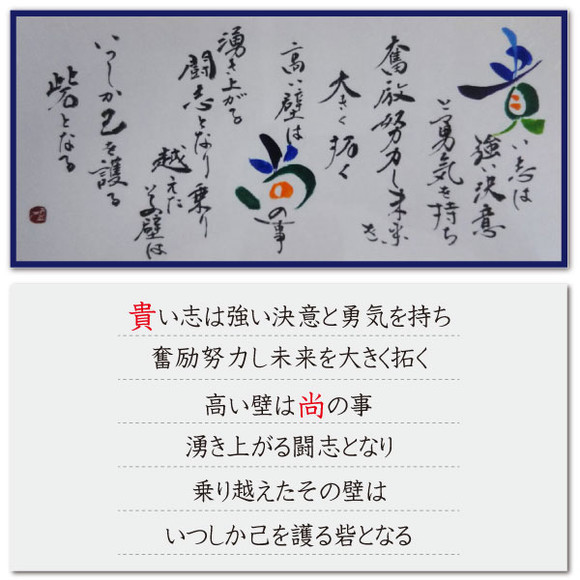 貴い志は
強い決意
と勇気を持ち
奮励努力し未来を
大きく拓く
高い壁は
尚の事
湧き上がる
闘志となり乗り
越えた
その壁は
いつしか己を護る
砦となる
貴い志は強い決意と勇気を持ち
奮励努力し未来を大きく拓く
高い壁は尚の事
湧き上がる闘志となり
乗り越えたその壁は
いつしか己を護る砦となる